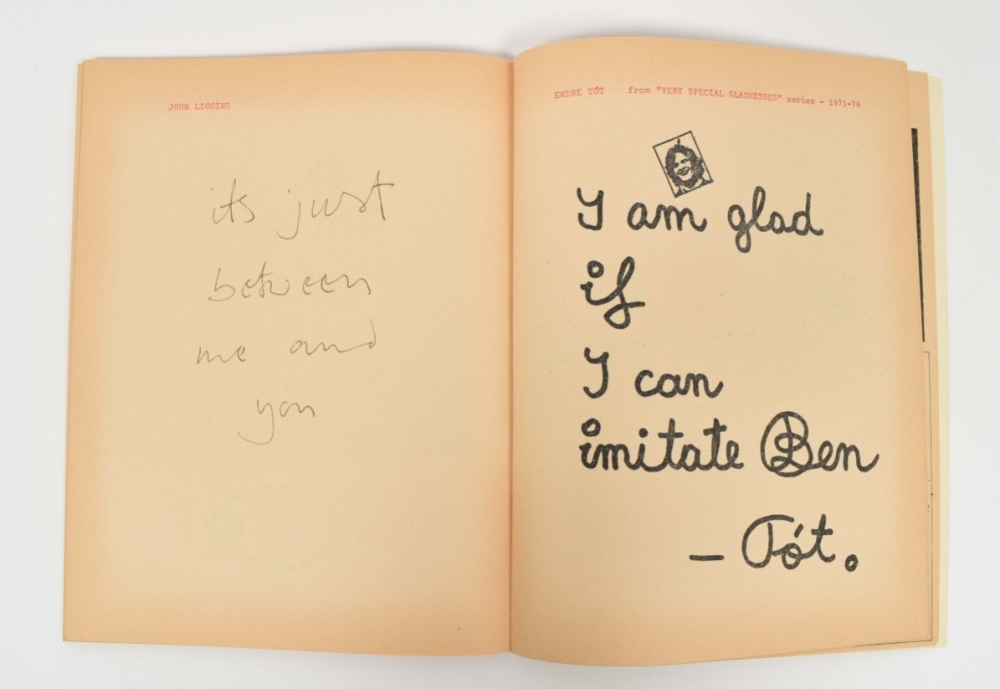 JOHN LIGGINS
its just
between
me and
you
ENDRE TÓT from "VERY SPECIAL GLADNESSES" series - 1971-76
I am glad
if
I can
imitate Ben
— Tót.